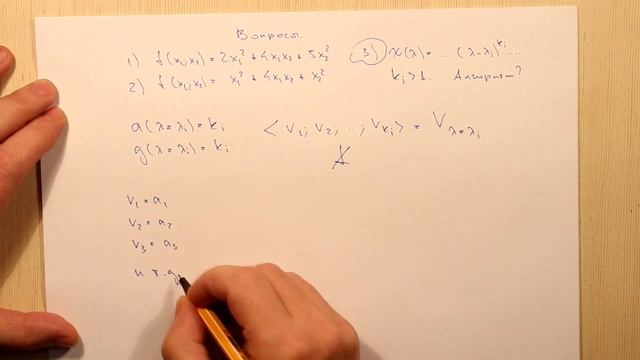 Вопросы.
1) f(x₁,x₂) = 2x₁² + 4x₁x₂ + 5x₂²
2) f(x₁,x₂) = x₁² + 4x₁x₂ + x₂²
3) χ(λ) = ...(λ-λᵢ)^kᵢ...
kᵢ>1. Алгоритм?
a(λ=λᵢ)=kᵢ
g(λ=λᵢ)=kᵢ
<v₁; v₂; ..; v_kᵢ> = V_λ=λᵢ
v₁=a₁
v₂=a₂
v₃=a₃
и т.д.